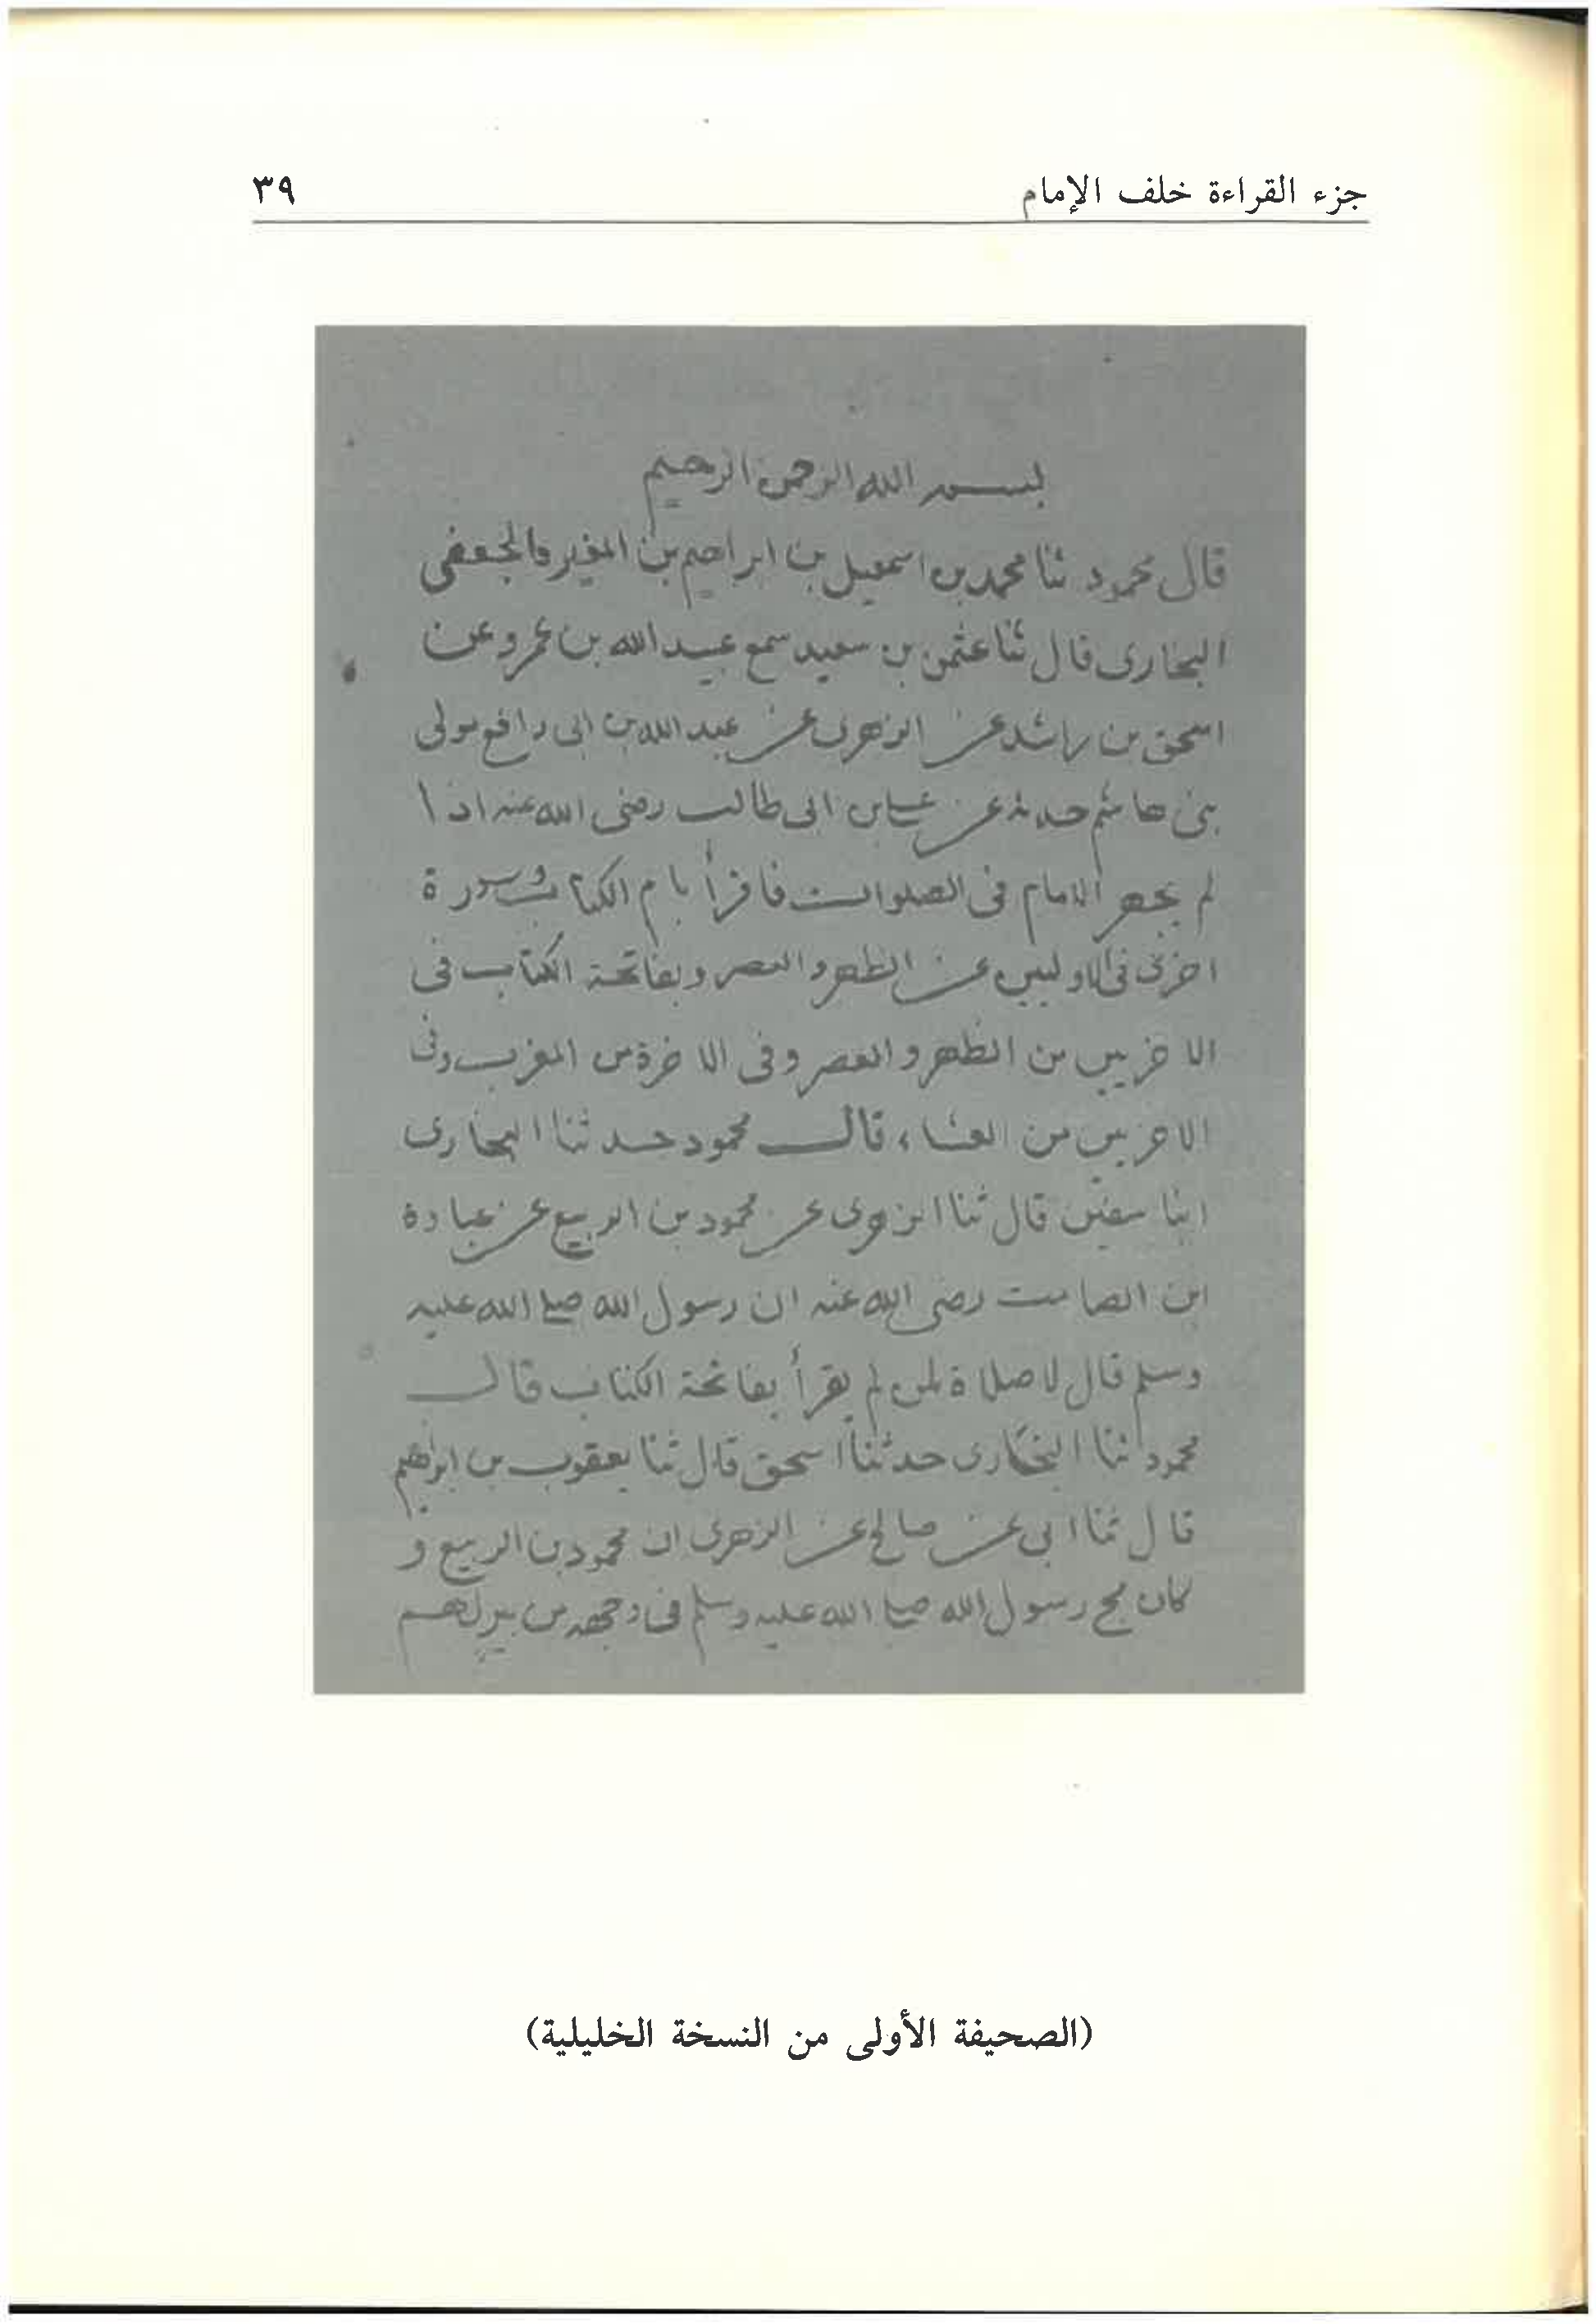 جزء القراءة خلف الإمام ٣٩
بسم الله الرحمن الرحيم
قال محمود ثنا محمد بن اسمعيل بن ابراهيم بن المغيرة الجعفي
البخارى قال ثنا عثمن بن سعيد سمع عبيد الله بن عمرو عن
اسحق بن راشد عن الزهرى عن عبد الله بن ابى رافع مولى
بنى هاشم حدثه عن على بن ابى طالب رضى الله عنه اذا
لم يجهر الامام فى الصلوات فاقرأ بام الكتاب وسورة
اخرى فى الاوليين من الظهر والعصر وبفاتحة الكتاب فى
الاخريين من الظهر والعصر وفى الاخرة من المغرب وفى
الاخريين من العشاء قال محمود حدثنا البخارى
انبا سفين قال ثنا الزهرى عن محمود بن الربيع عن عبادة
ابن الصامت رضى الله عنه ان رسول الله صلى الله عليه
وسلم قال لا صلاة لمن لم يقرأ بفاتحة الكتاب قال
محمود ثنا البخارى حدثنا اسحق قال ثنا يعقوب بن ابراهيم
قال ثنا ابى عن صالح عن الزهرى ان محمود بن الربيع و
كان مج رسول الله صلى الله عليه وسلم فى وجهه من بير لهم
(الصحيفة الأولى من النسخة الخليلية)